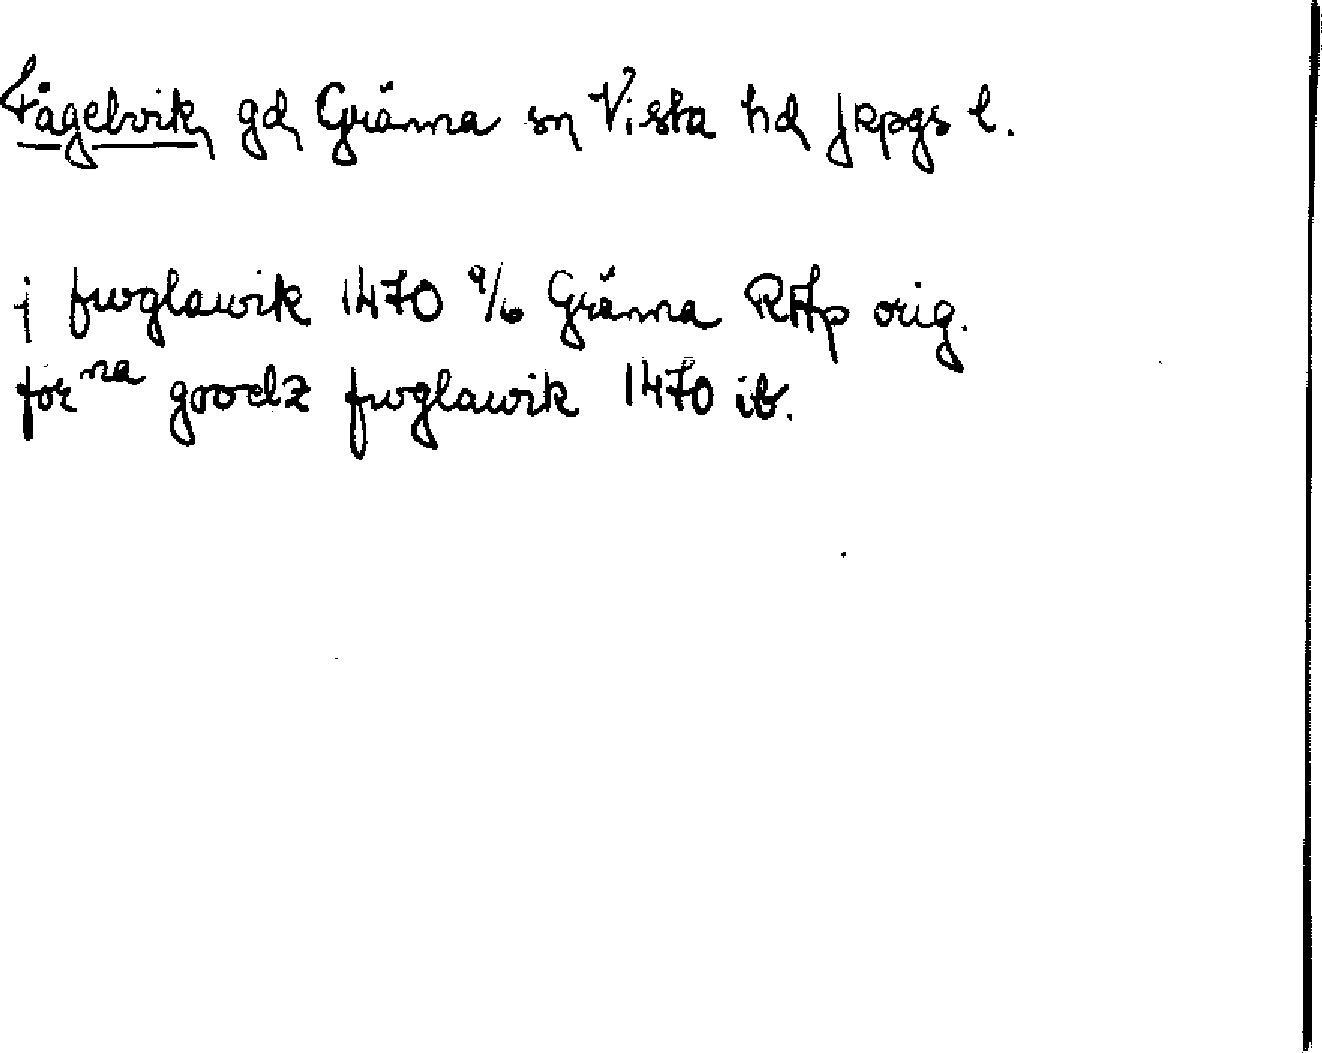 Fågelvik, gd, Gränna sn Vista hd Jkpgs l.
j fwglawik 1470 9/6 Gränna RAp orig.
for na goodz fwglawik 1470 ib.